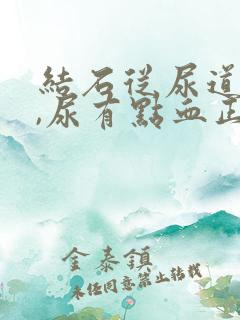 結石從尿道
,尿有點血正
金泰鎮
未經同意禁止轉載